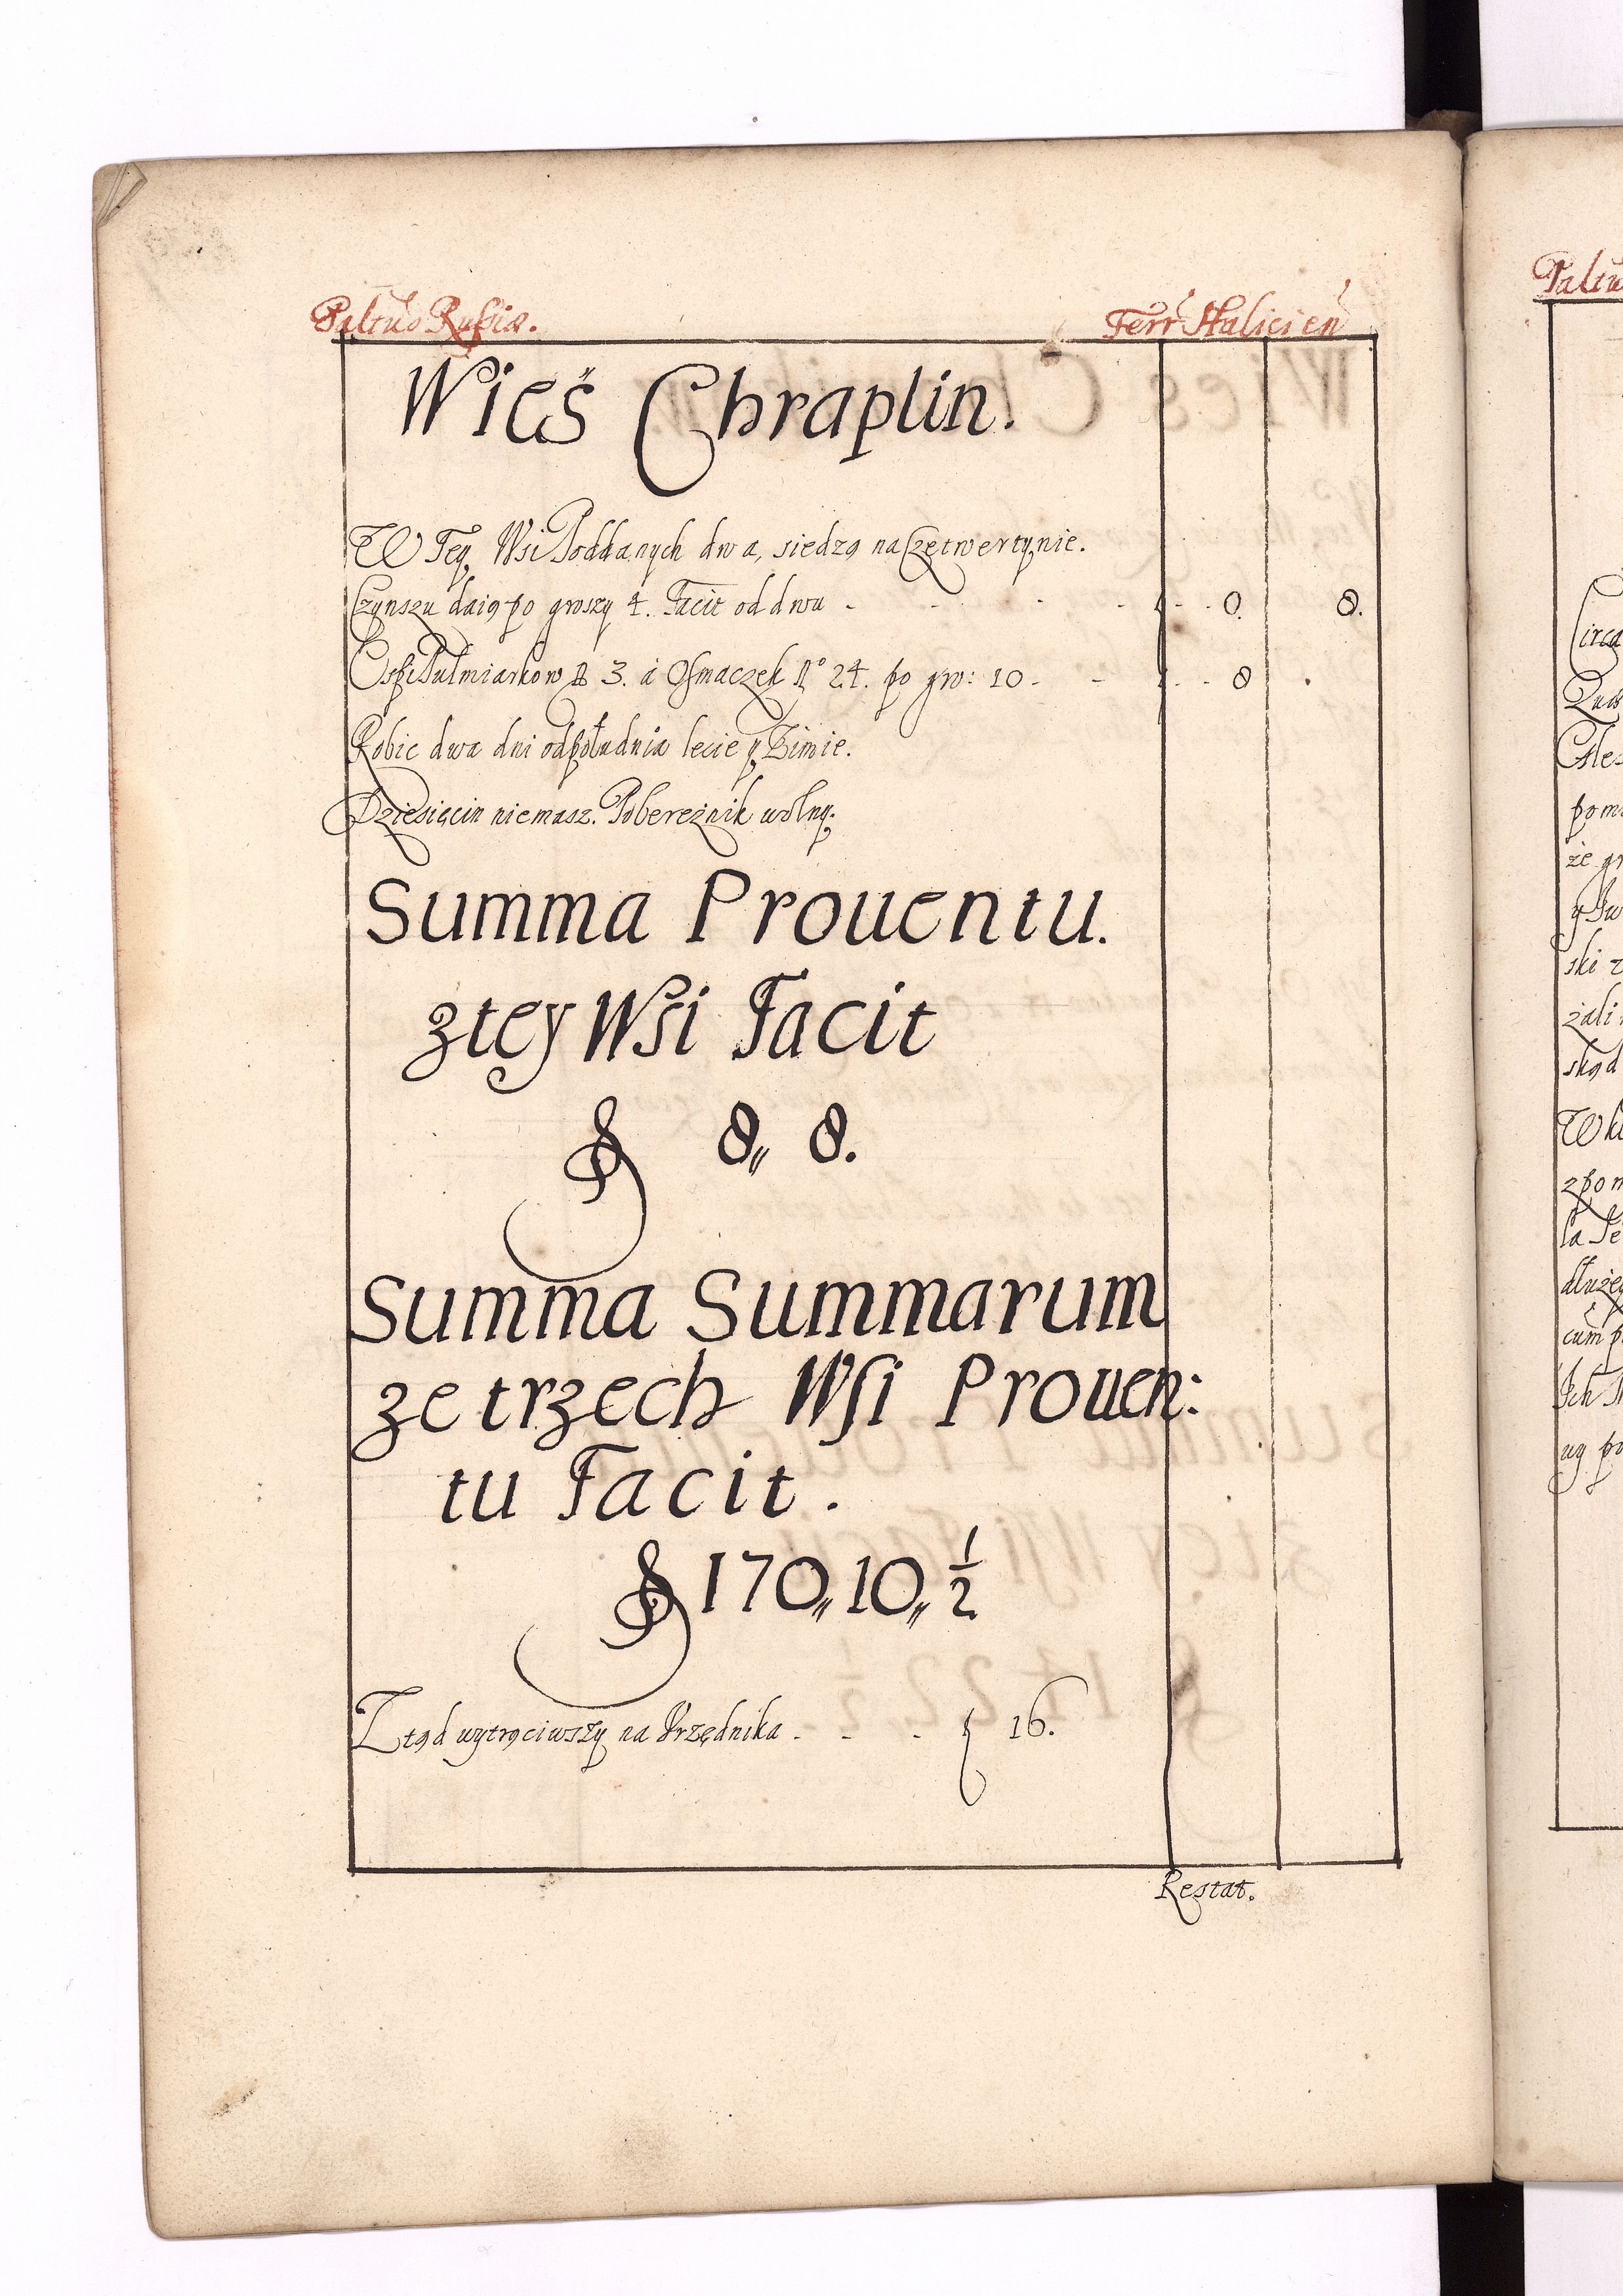 Paltus Russiæ. Terr Halicien
Wieś Chraplin.
W Tey Wsi Poddanych dwa, siedzą na Czetwertynie.
Czynszu daią po groszy 4. Facit od dwu - - - - 0. 8.
Osspi Pułmiarkow No 3. á Ośmaczek No 24. po gro: 10 - - - 8 .
Robic dwa dni od południa lecie y Zimie.
Dziesięcin niemasz. Pobereżnik wolny.
Summa Prouentu.
z tey Wsi Facit
8,, 8.
Summa Summarum
ze trzech Wsi Prouen:
tu Facit.
170,, 10,, ½
Z tąd wytrąciwszy na Vrzędnika - - - 16.
Restat.
Paltu
Circa
pomi
że gr
ski z
żali
skąd
W kt
z pom
dłuże
cum p
Ich M